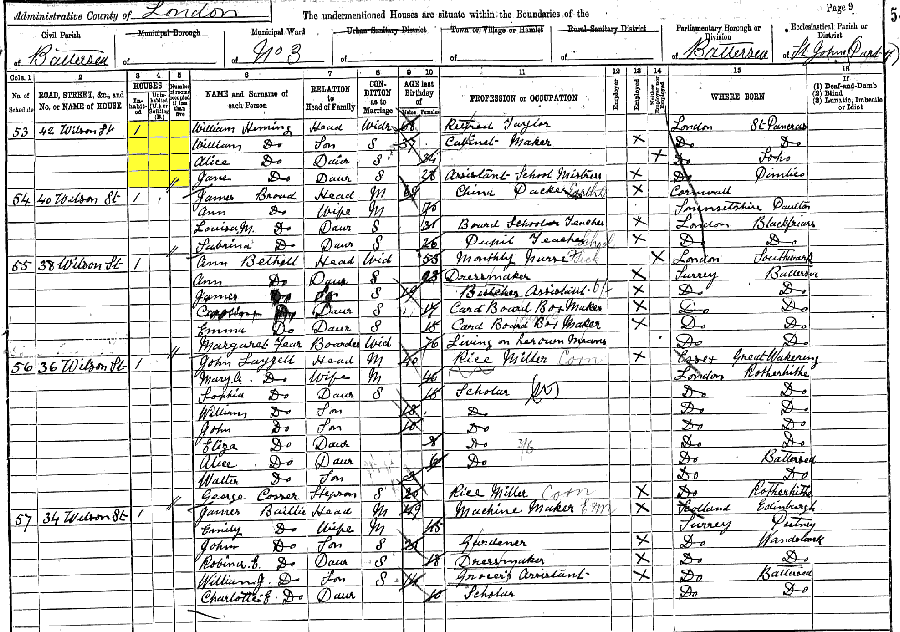 Page 9
Administrative County of London
The undermentioned Houses are situate within the Boundaries of the
Civil Parish of Battersea
Municipal Borough of
Municipal Ward of No 3
Urban Sanitary District of
Town or Village or Hamlet of
Rural Sanitary District of
Parliamentary Borough or Division of Battersea
Ecclesiastical Parish or District of St John
Cols. 1 2 3 4 5 6 7 8 9 10 11 12 13 14 15 16
No. of Schedule
ROAD, STREET, &c., and No. or NAME of HOUSE
HOUSES
NAME and Surname of each Person
RELATION to Head of Family
CONDITION as to Marriage
AGE last Birthday of
Males Females
PROFESSION or OCCUPATION
Employer
Employed
WHERE BORN
If (1) Deaf-and-Dumb (2) Blind (3) Lunatic, Imbecile or Idiot
53 42 Wilson St 1 William Head Widr 68 Retired London St Pancras
William Do Son S 37 Cabinet Maker X Do Do
Alice Do Daur S X Do Soho
Jane Do Daur S 28 Assistant School Mistress X Do Pimlico
54 40 Wilson St 1 James Broad Head M 69 China Packer X Cornwall
Ann Do Wife M 70 Somersetshire
Louisa M. Do Daur S 31 Board School Teacher X London Blackfriars
Sabrina Do Daur S 26 Pupil Teacher School X Do Do
55 38 Wilson St 1 Ann Bethell Head Wid 53 Monthly Nurse X London Southwark
Ann Do Daur S 23 Dressmaker X Surrey Battersea
James Do Son S 19 Butchers Assistant X Do Do
Do Daur S 17 Card Board Box Maker X Do Do
Emma Do Daur 15 Card Board Box Maker X Do Do
Margaret Boarder Wid 76 Living on her own Means Do Do
56 36 Wilson St 1 John Head M 40 Rice Miller Corn X Essex Great Wakering
Mary A. Do Wife M 40 London Rotherhithe
Sophia Do Daur S 15 Scholar Do Do
William Do Son Do Do Do
John Do Son 10 Do Do Do
Eliza Do Daur 8 Do Do Do
Alice Do Daur 6 Do Do Battersea
Walter Do Son Do Do
George Stepson S 20 Rice Miller Corn X Do Rotherhithe
57 34 Wilson St 1 James Baillie Head M 49 Machine Maker X Scotland Edinburgh
Emily Do Wife M 45 Surrey Putney
John Do Son S 21 Gardener X Do Wandsworth
Robina E. Do Daur S 18 Dressmaker X Do Do
William J. Do Son S 14 Grocer's Assistant X Do Battersea
Charlotte E. Do Daur 10 Scholar Do Do